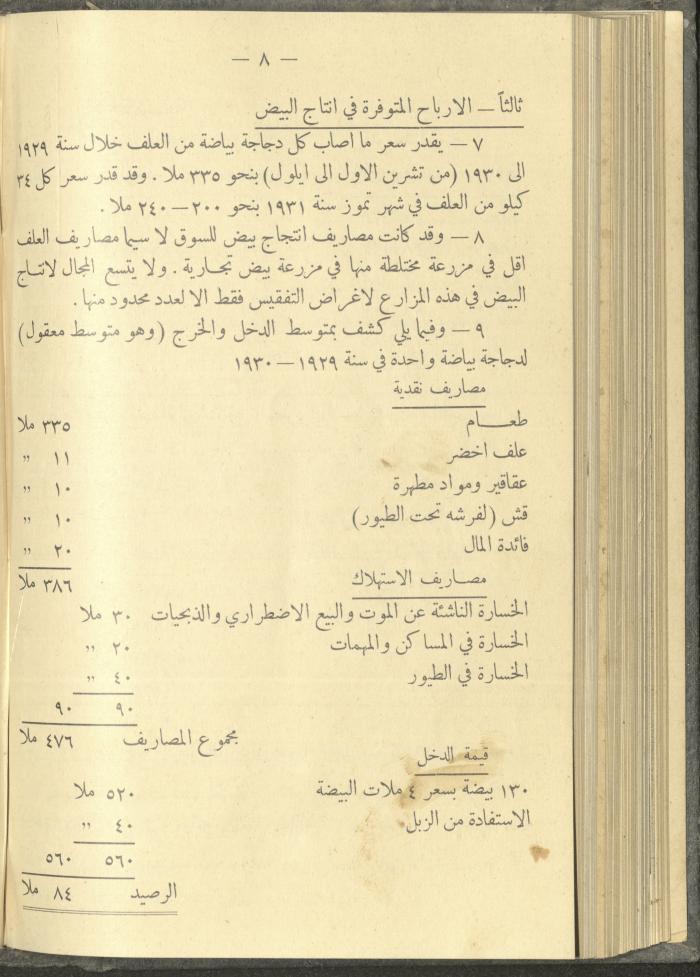 — ٨ —
ثالثاً — الارباح المتوفرة في انتاج البيض
٧ — يقدر سعر ما اصاب كل دجاجة بياضة من العلف خلال سنة ١٩٢٩
الى ١٩٣٠ (من تشرين الاول الى ايلول) بنحو ٣٣٥ ملا . وقد قدر سعر كل ٣٤
كيلو من العلف في شهر تموز سنة ١٩٣١ بنحو ٢٠٠ — ٢٤٠ ملا .
٨ — وقد كانت مصاريف انتجاج بيض للسوق لا سيما مصاريف العلف
اقل في مزرعة مختلطة منها في مزرعة بيض تجارية . ولا يتسع المجال لانتاج
البيض في هذه المزارع لاغراض التفقيس فقط الا لعدد محدود منها .
٩ — وفيما يلي كشف بمتوسط الدخل والخرج (وهو متوسط معقول)
لدجاجة بياضة واحدة في سنة ١٩٢٩ — ١٩٣٠
مصاريف نقدية
طعـــام ٣٣٥ ملا
علف اخضر ١١ ,,
عقاقير ومواد مطهرة ١٠ ,,
قش (لفرشه تحت الطيور) ١٠ ,,
فائدة المال ٢٠ ,,
٣٨٦ ملا
مصـاريف الاستهلاك
الخسارة الناشئة عن الموت والبيع الاضطراري والذبحيات ٣٠ ملا
الخسارة في المساكن والمهمات ٢٠ ,,
الخسارة في الطيور ٤٠ ,,
٩٠ ٩٠
مجموع المصاريف ٤٧٦ ملا
قيمة الدخل
١٣٠ بيضة بسعر ٤ ملات البيضة ٥٢٠ ملا
الاستفادة من الزبل ٤٠ ,,
٥٦٠ ٥٦٠
الرصيد ٨٤ ملا